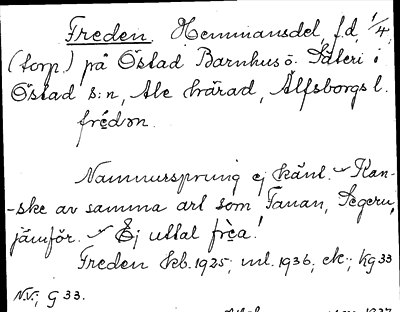 Freden. Hemmansdel, f.d. 1/4
(torp.) på Östad Barnhus ö. Säteri i
Östad s:n, Ale härad, Älfsborgs l.
frédən.
Namnursprung ej känt. Kan-
-ske av samma art som Fanan, Segern,
jämför. Ej uttal frèa!
Freden kb. 1925; ml. 1936; ek.; kg 33
N.V.; G 33.